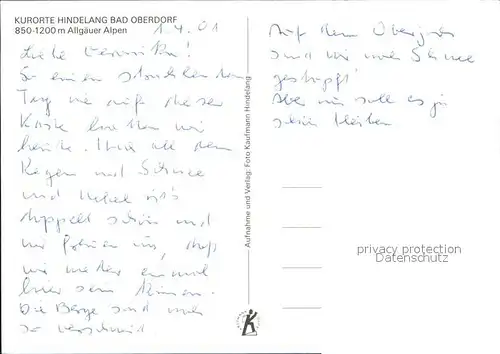 KURORTE HINDELANG BAD OBERDORF
850-1200 m Allgäuer Alpen
1.4.01
Liebe Veronika!
So einen strahlenden
Tag wie auf dieser
Karte hatten wir
heute. Nach all dem
Regen und Schnee
und Nebel ist's
doppelt schön und
wir freuen uns, daß
wir wieder einmal
hier sein können.
Die Berge sind noch
so verschneit
Auf dem Oberjoch
sind wir noch Schnee
gestapft!
Aber nun soll es ja
schön bleiben
Aufnahme und Verlag: Foto Kaufmann Hindelang
privacy protection
Datenschutz